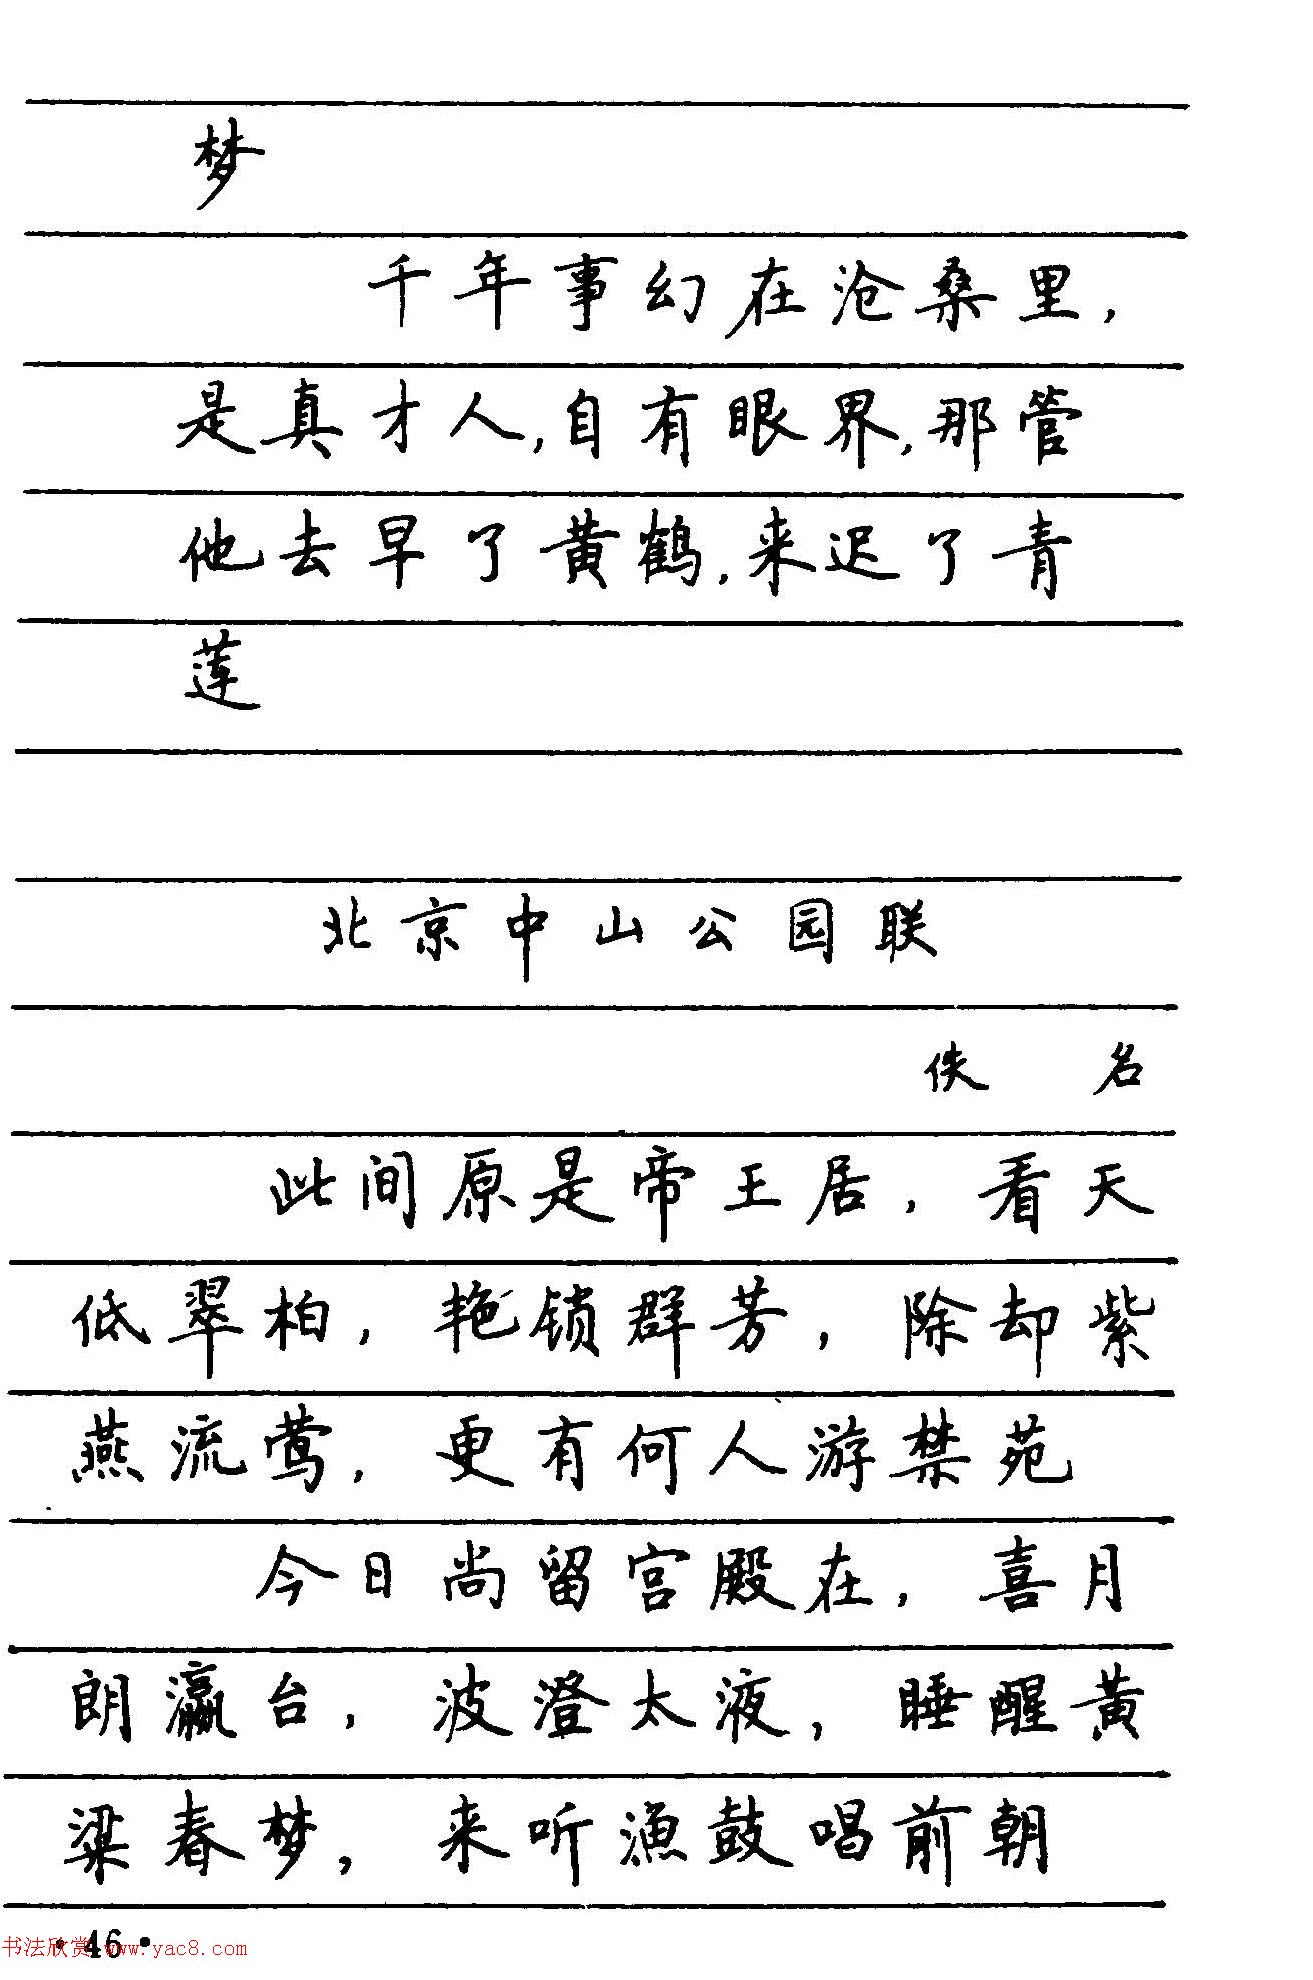 梦
千年事幻在沧桑里,
是真才人,自有眼界,那管
他去早了黄鹤,来迟了青
莲
北京中山公园联
佚 名
此间原是帝王居,看天
低翠柏,艳锁群芳,除却紫
燕流莺,更有何人游禁苑
今日尚留宫殿在,喜月
朗瀛台,波澄太液,睡醒黄
粱春梦,来听渔鼓唱前朝
·46·
书法欣赏 www.yac8.com